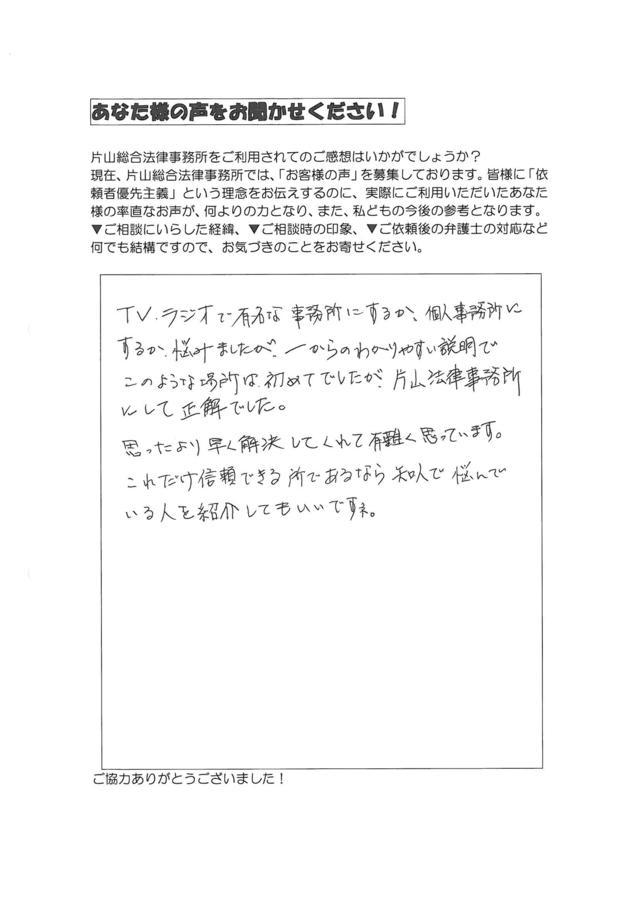 あなた様の声をお聞かせください！
片山総合法律事務所をご利用されてのご感想はいかがでしょうか？
現在、片山総合法律事務所では、「お客様の声」を募集しております。皆様に「依
頼者優先主義」という理念をお伝えするのに、実際にご利用いただいたあなた
様の率直なお声が、何よりの力となり、また、私どもの今後の参考となります。
▼ご相談にいらした経緯、▼ご相談時の印象、▼ご依頼後の弁護士の対応など
何でも結構ですので、お気づきのことをお寄せください。
TV・ラジオで有名な事務所にするか、個人事務所に
するか、悩みましたが、一からのわかりやすい説明で
このような場所は初めてでしたが、片山法律事務所
にして正解でした。
思ったより早く解決してくれて有難く思っています。
これだけ信頼できる所であるなら知人で悩んで
いる人を紹介してもいいですね。
ご協力ありがとうございました！